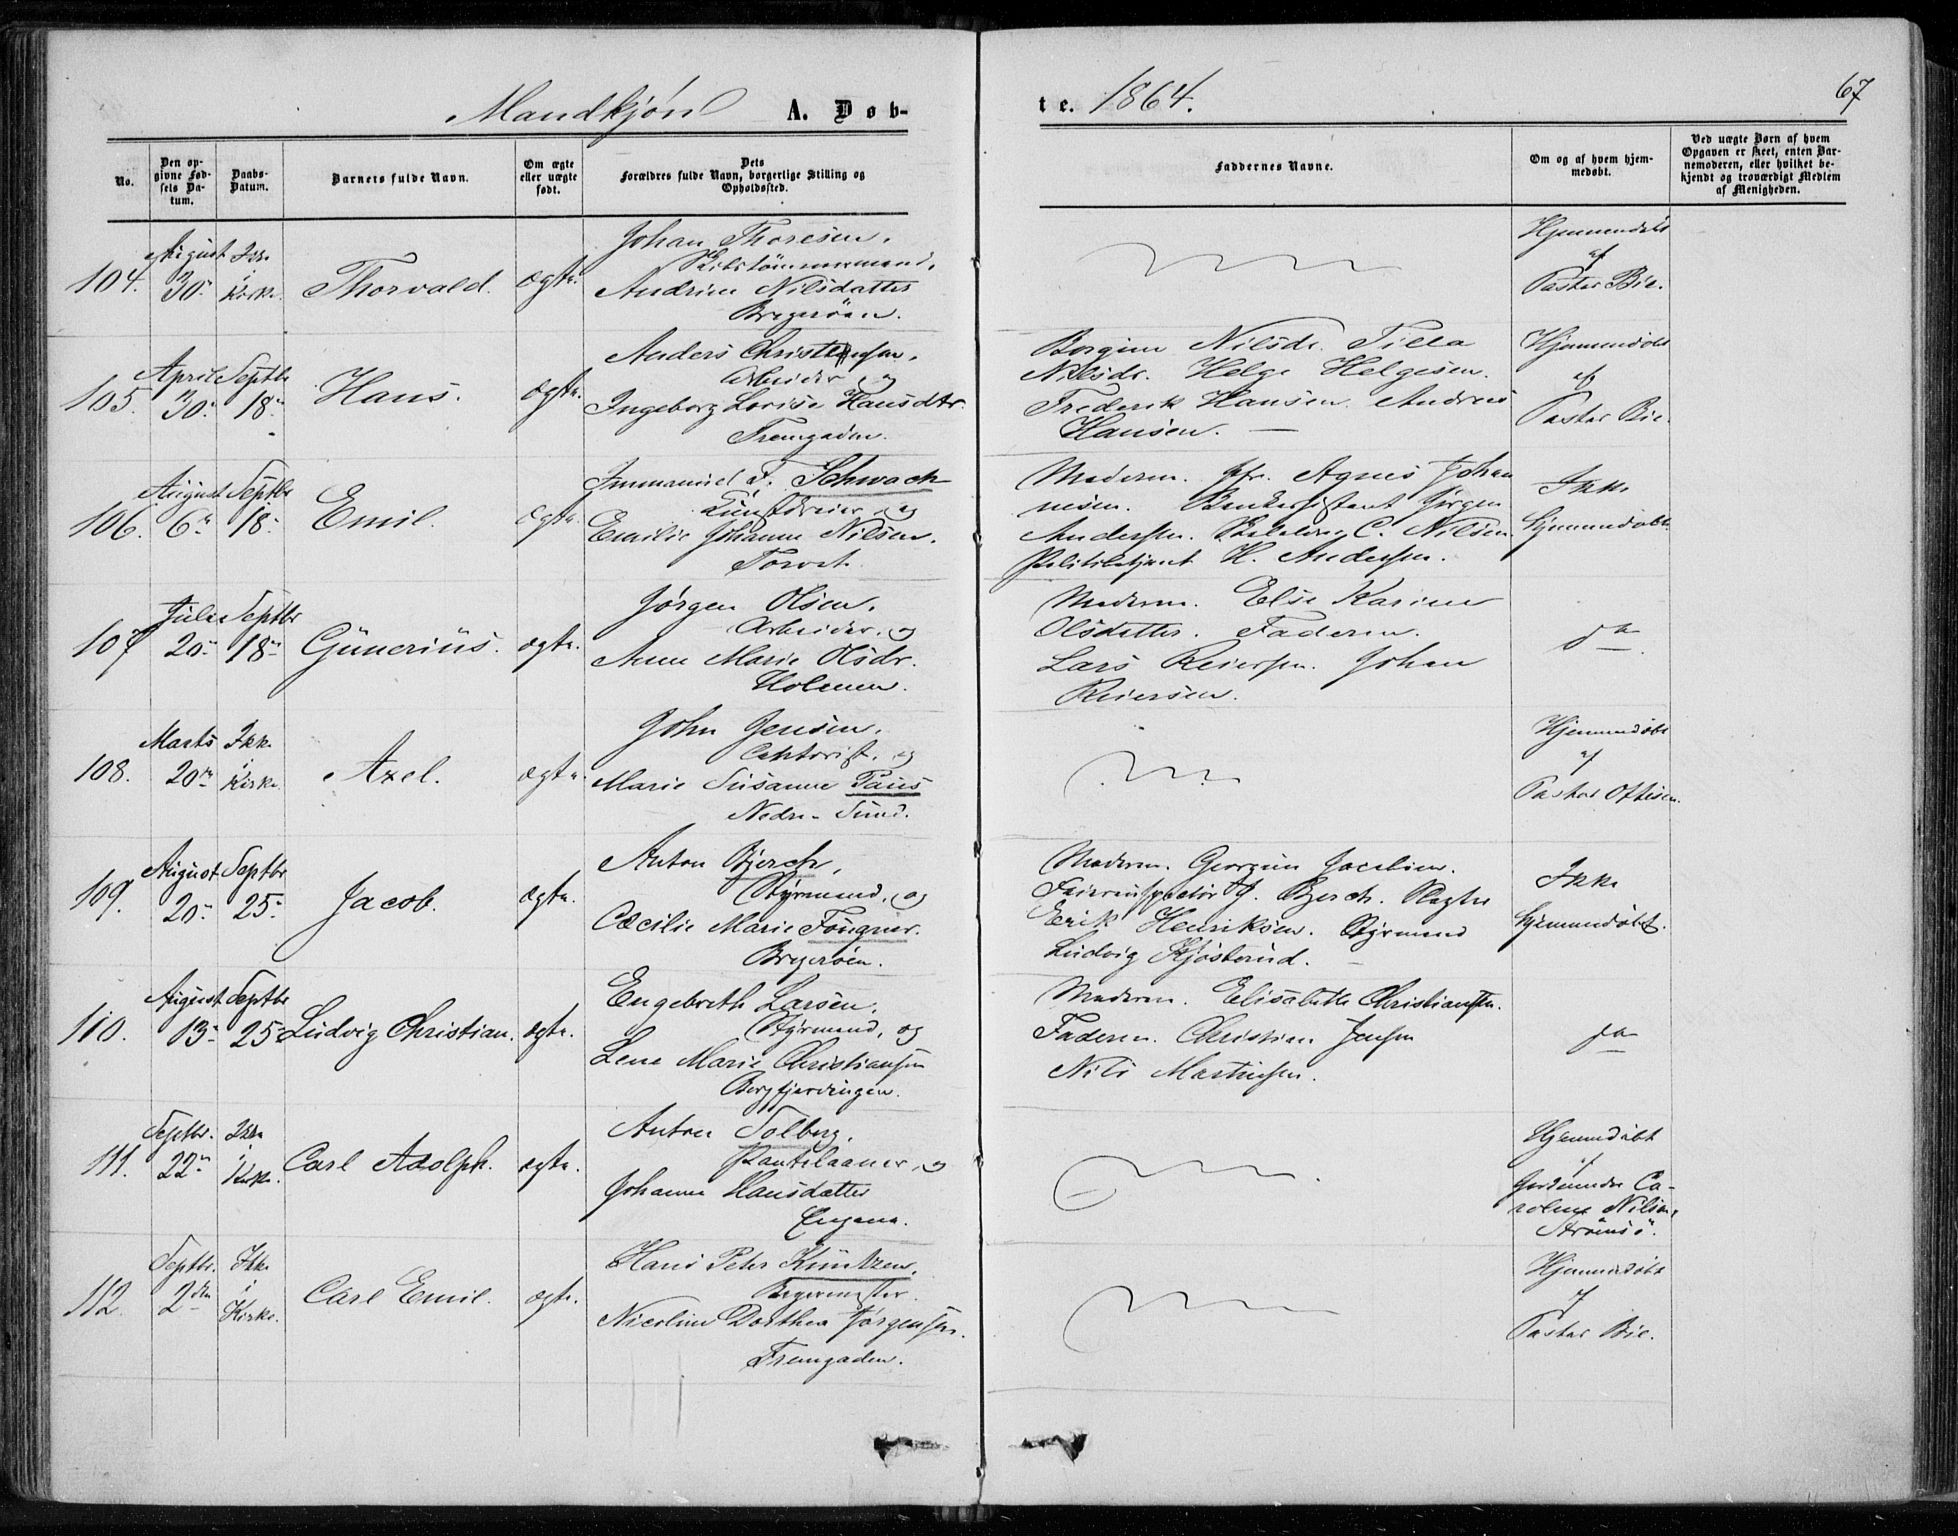 Mandkjøn A. Døb-
te. 1864.
67
No.
Den op-
givne Fød-
sels Da-
tum.
Daabs-
Datum.
Barnets fulde Navn.
Om ægte
eller uægte
født.
Dets
Forældres fulde Navn, borgerlige Stilling og
Opholdssted.
Faddernes Navne.
Om og af hvem hjem-
medøbt.
Ved uægte Børn af hvem
Opgaven er skeet, enten Bar-
nemoderen, eller hvilket be-
kjendt og troværdigt Medlem
af Menigheden.
104.
August
30
Ikke
i
Kirke.
Thorvald.
ægte.
Johan Thoresen.
Skibstømmermand.
Andrine Nilsdatter
Bragerøen.
Hjemmedøbt
af
Pastor Bie.
105.
April
30
Septbr
18
Hans.
ægte.
Anders Christensen.
Arbeider og
Ingeborg Lovise Hansdtr.
Fremgaden.
Borgine Nilsdr. Tilla
Nilsdr. Helge Helgesen.
Frederik Hansen. Andreas
Hansen.
Hjemmedøbt
af
Pastor Bie.
106.
August
6
Septbr
18
Emil.
ægte.
Immanuel F. Schwach
Kunstdreier, og
Emilie Johanne Nilsen.
Torvet.
Moderen. Jfr. Agnes Johan
nesen. Bankassistent Jørgen
Andersen. C. Nilsen
Politibetjent H. Andersen.
Ikke
hjemmedøbt.
107
Juli
20
Septbr
18
Gunerius.
ægte.
Jørgen Olsen.
Arbeider, og
Anne Marie Olsdr.
Holmen.
Moderen. Else Karine
Olsdatter. Faderen.
Lars Reiersen. Johan
Reiersen.
do
108.
Marts
20
Ikke
i
Kirke.
Axel.
ægte
John Jensen.
Contorist, og
Marie Susanne Paus
Nedre-Sund.
Hjemmedøbt
af
Pastor Ottesen.
109.
August
20
Septbr
25
Jacob.
ægte.
Anton Bjerch,
Styrmand, og
Cæcilie Marie Fougner.
Bragerøen.
Moderen. Georgine Jacobine.
Feierinspectør J. Bjerch.
Erik Henriksen. Styrmand
Ludvig Kjøsterud.
Ikke
hjemmedøbt.
110.
August
13
Septbr
25
Ludvig Christian.
ægte.
Engebreth Larsen,
Styrmand, og
Lene Marie Christiansen
Bergfjerdingen.
Moderen. Elisabeth Christiansen.
Faderen. Christian Jensen
Nils Martinsen.
do
111.
Septbr.
22
Ikke
i
Kirke.
Carl Adolph.
ægte.
Anton Solberg,
Pantelaaner, og
Johanne Hansdatter
Engene.
Hjemmedøbt
af
Jordemoder Ca-
roline Nilsen,
Strømsø.
112.
Septbr.
2den
Ikke
i
Kirke.
Carl Emil.
ægte.
Hans Peter Knutzen,
Bagermester.
Nicoline Dorthea Jørgensen.
Fremgaden.
Hjemmedøbt
af
Pastor Bie.